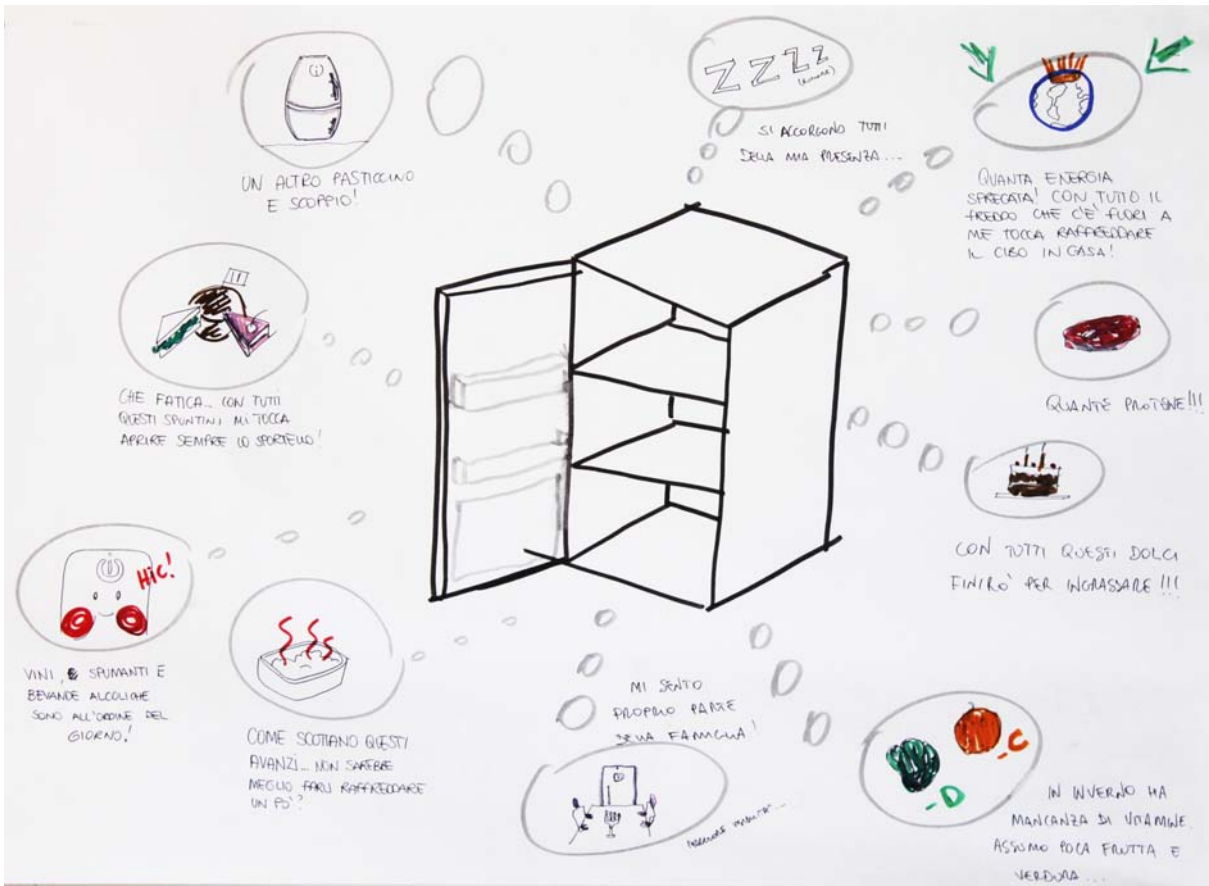 UN ALTRO PASTICCINO
E SCOPPIO!
ZZZZ
(RUMORE)
SI ACCORGONO TUTTI
DELLA MIA PRESENZA...
QUANTA ENERGIA
SPRECATA! CON TUTTO IL
FREDDO CHE C'E' FUORI A
ME TOCCA RAFFREDDARE
IL CIBO IN CASA!
CHE FATICA... CON TUTTI
QUESTI SPUNTINI MI TOCCA
APRIRE SEMPRE LO SPORTELLO!
QUANTE PROTEINE!!!
CON TUTTI QUESTI DOLCI
FINIRO' PER INGRASSARE!!!
Hic!
VINI, E SPUMANTI E
BEVANDE ALCOLICHE
SONO ALL'ORDINE DEL
GIORNO!
COME SCOTTANO QUESTI
AVANZI... NON SAREBBE
MEGLIO FARLI RAFFREDDARE
UN PO'?
MI SENTO
PROPRIO PARTE
DELLA FAMIGLIA!
-C
-D
IN INVERNO HA
MANCANZA DI VITAMINE.
ASSUMO POCA FRUTTA E
VERDURA...